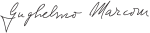 Guglielmo Marconi